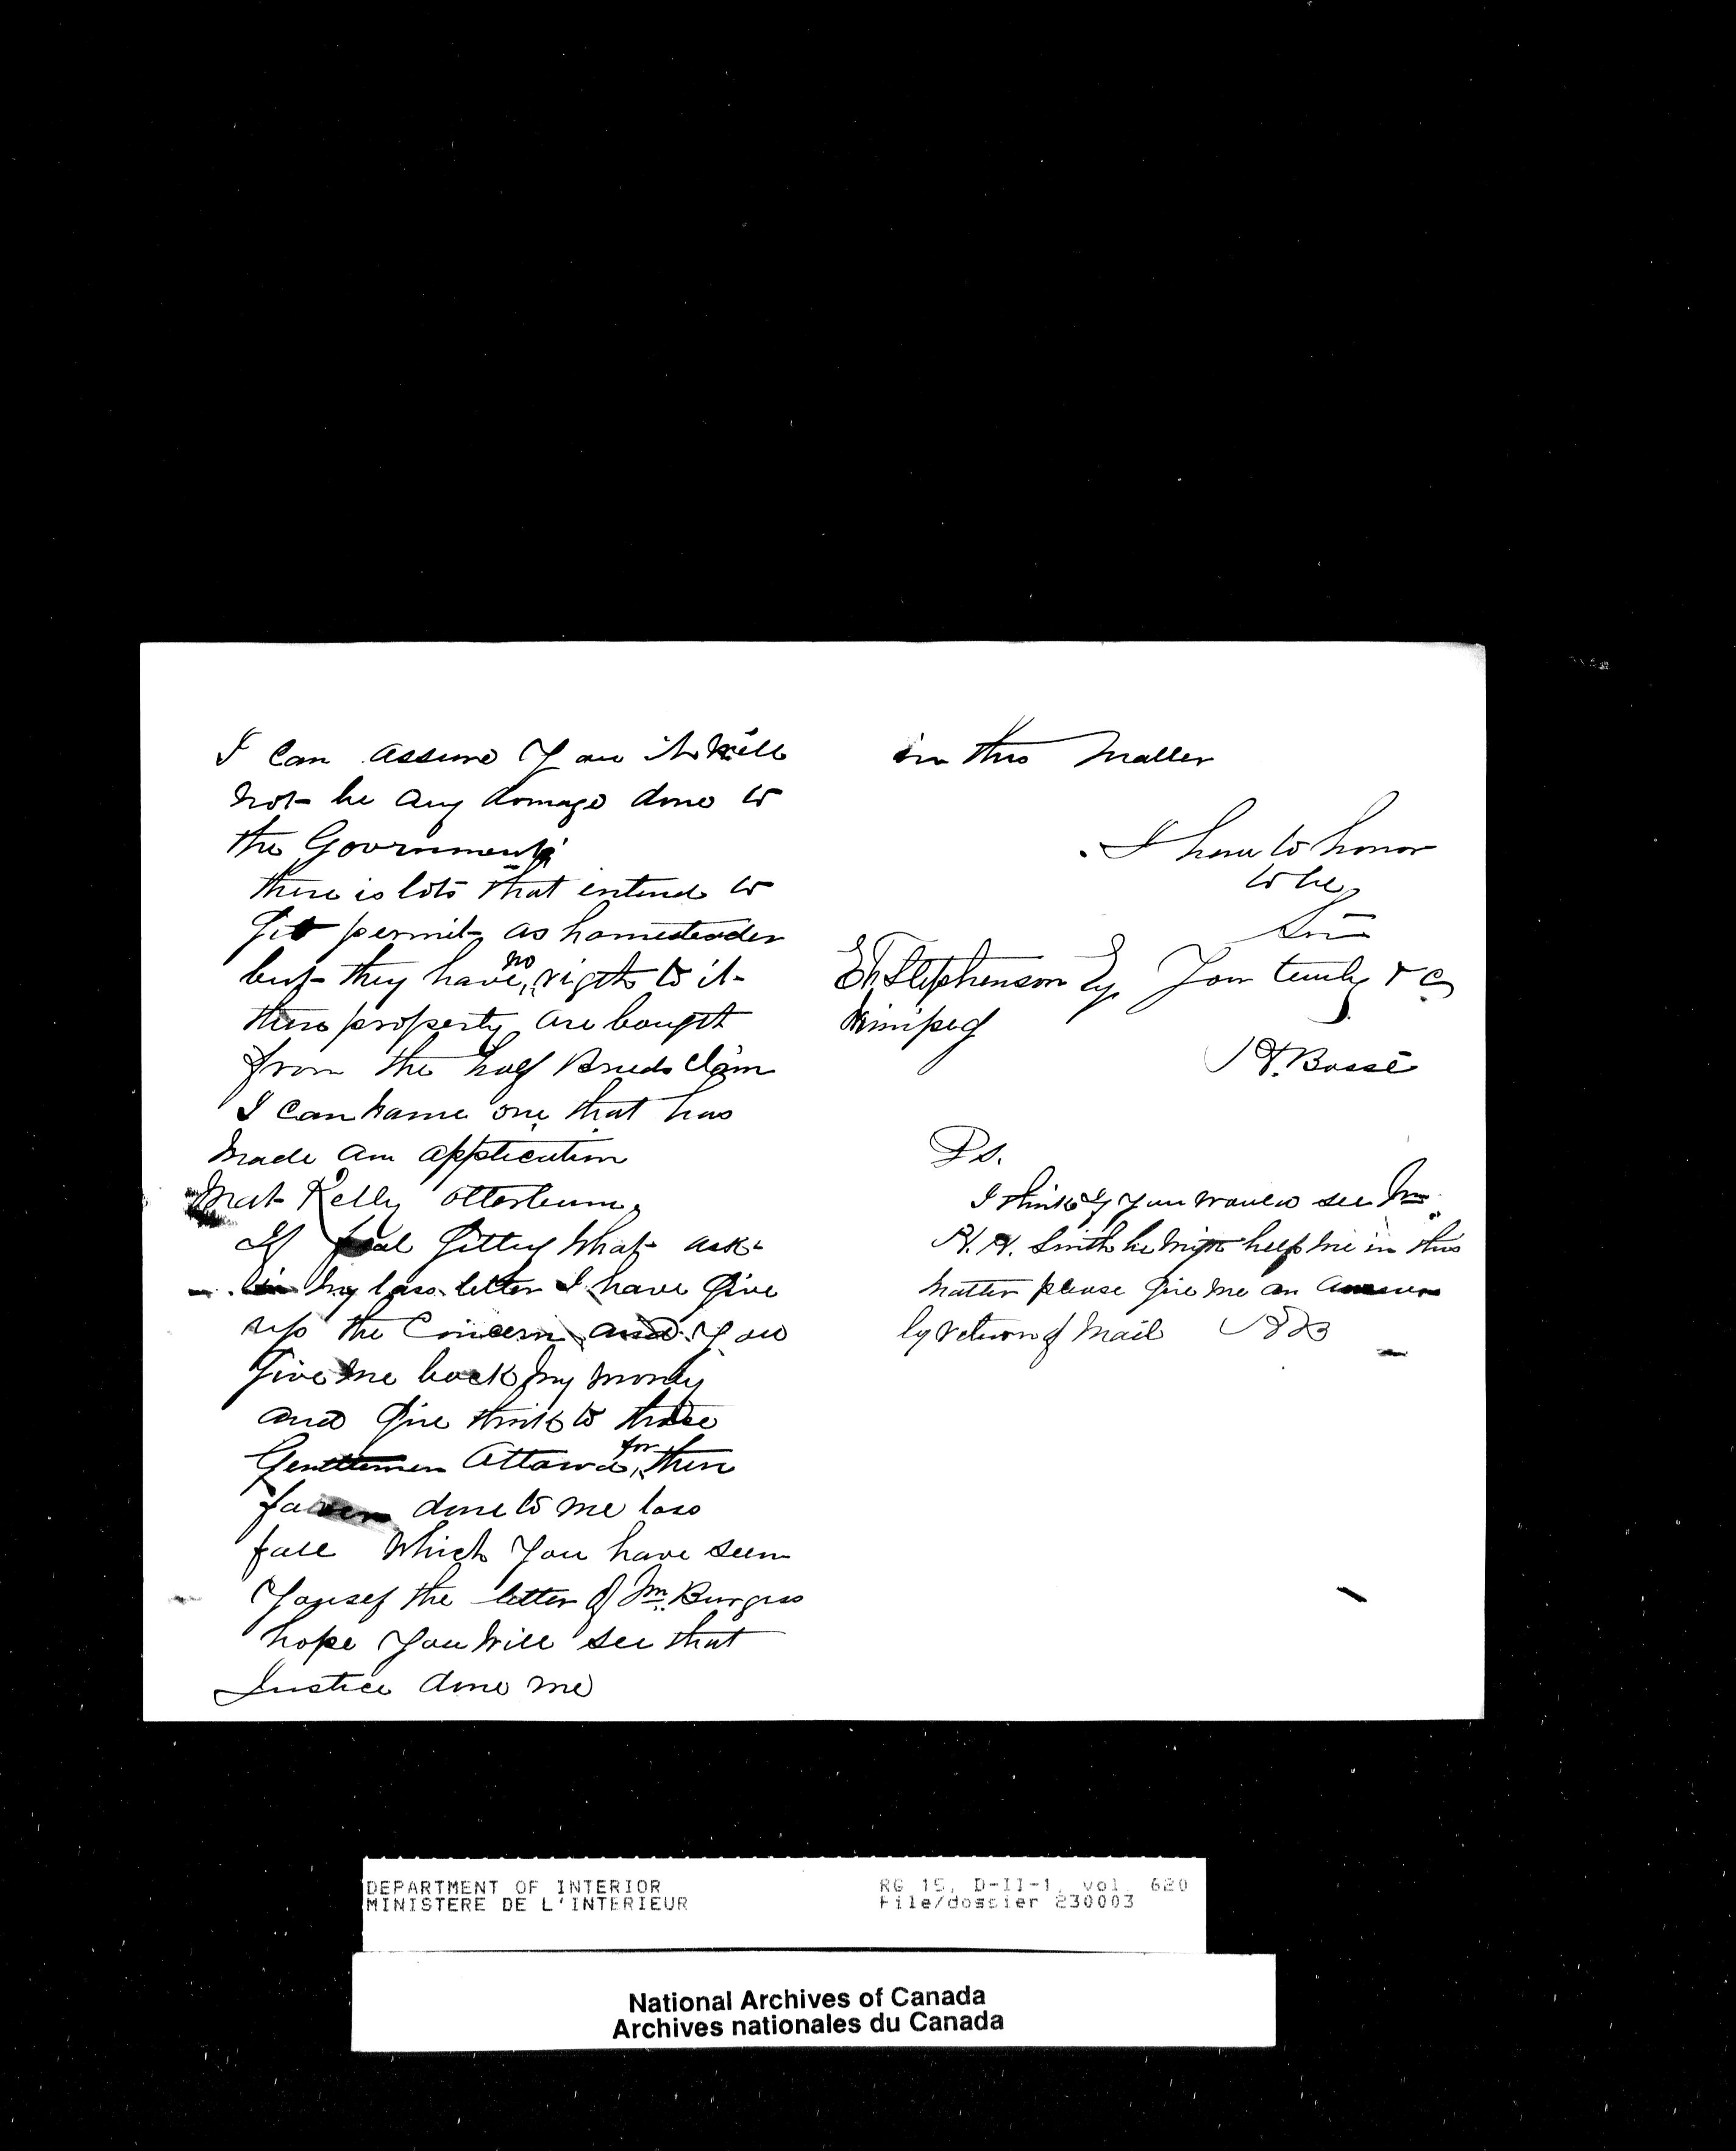 I Can assure You it Will
not be any domage done to
the Government
there is lots that entend to
git permit as homesteader
but they have no rigth to it
there property are bougth
from the half Breeds claim
I Can name one that has
made an application
Mat Kelly Otterburne
If feal gitting What ask
in my lass letter I have Give
up the Concern and You
Give me back my money
and Give think to those
Gentlemen Attawa for there
faver done to me lass
fall Which You have seen
Yousef the letter of Mr. Burgess
hope You Will see that
Justice done me
in this Matter
I have to honor
to be
Sir
Stephenson Esq. Your truly & c
Winipeg
H. Bossé
Ps.
I think if You Would see Mr.
H. H. Smith he migth help me in this
matter please Give me an answer
by return of Mail HB
DEPARTMENT OF INTERIOR
MINISTERE DE L'INTERIEUR
RG 15, D-II-1, vol. 620
File/dossier 230003
National Archives of Canada
Archives nationales du Canada